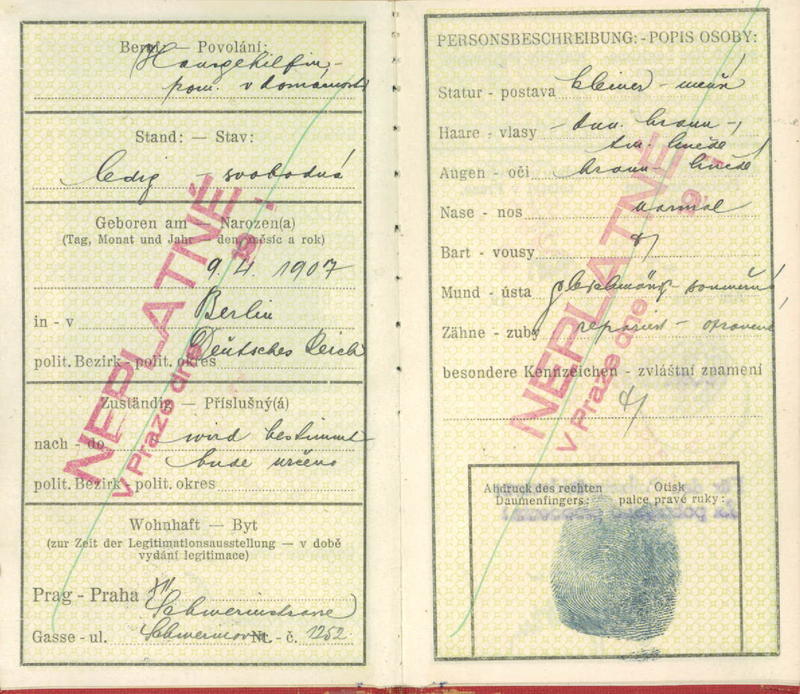 Beruf: — Povolání:
Hausgehilfin -
pom. v domácnosti
Stand: — Stav:
ledig - svobodná
Geboren am — Narozen(a)
(Tag, Monat und Jahr — den, měsíc a rok)
9. 4. 1907
in - v Berlin
polit. Bezirk - polit. okres Deutsches Reich
Zuständig — Příslušný(á)
nach - do wird bestimmt
bude určeno
polit. Bezirk - polit. okres
Wohnhaft — Byt
(zur Zeit der Legitimationsausstellung — v době
vydání legitimace)
Prag - Praha XII
Schwerinstrasse
Gasse - ul. Schwerinova Nr. - č. 1252
NEPLATNÉ
V Praze dne
PERSONSBESCHREIBUNG: - POPIS OSOBY:
Statur - postava kleiner - menší
Haare - vlasy dun. braun -
tm. hnědé
Augen - oči braun - hnědé
Nase - nos normal
Bart - vousy
Mund - ústa gleichmäßig souměrná
Zähne - zuby repariert - opravené
besondere Kennzeichen - zvláštní znamení
NEPLATNÉ
V Praze dne
Abdruck des rechten Daumenfingers:
Otisk palce pravé ruky: